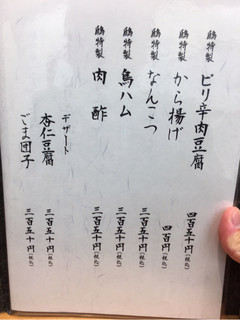 鴎特製 ピリ辛肉豆腐 四百五十円(税込)
鴎特製 から揚げ 四百円(税込)
鴎特製 なんこつ 三百五十円(税込)
鴎特製 鳥ハム 三百五十円(税込)
鴎特製 肉酢 三百五十円(税込)
デザート
杏仁豆腐 三百五十円(税込)
ごま団子 三百五十円(税込)